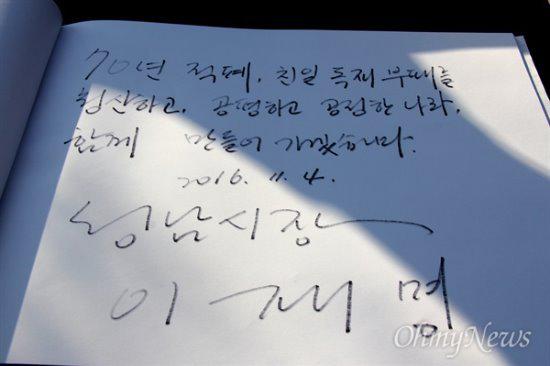 70년 적폐, 친일 독재 부패를
청산하고, 공평하고 공정한 나라,
함께 만들어 가겠습니다.
2016. 11. 4.
성남시장
이재명
OhmyNews